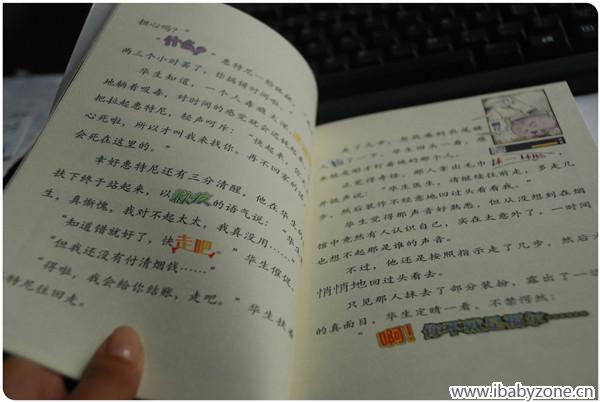 担心吗？”
“什么？”惠特尼一
两三个小时罢了，你搞错时间啦
华生知道，一个人毒瘾太深，
地躺着吸毒，对时间的感觉就会
把拉起惠特尼，轻声呵斥：“快起来，你
心死啦，所以才叫我来找你。再不回家的话
会死在这里的。”
幸好惠特尼还有三分清醒，他在华生的
扶下终于站起来，以的语气说：“华
生，真惭愧，我对不起太太，我真没用……”
“知道错就好了，快走吧。”华生催促。
“但我还没有付清烟钱……”
“得啦，我会给你结账，走吧。”华生扶着
特尼往回走。
走了几步，
了一下，华生回头一看，
正觉得奇怪，那人拿
并低声说：“华生医生，请继续往前走，多走几
步，然后装作不经意地回过头看看我。”
华生觉得那声音好熟悉，但从没想到在烟
馆中竟然有人认识自己，实在太意外了，一时间
也想不起那是谁的声音。
不过，他还是按照指示走了几步，然后
悄悄地回过头看去。
只见那人抹去了部分装扮，露出了一
的真面目，华生定睛一看，不禁愕然：
“啊！你不就是福尔……
www.ibabyzone.cn